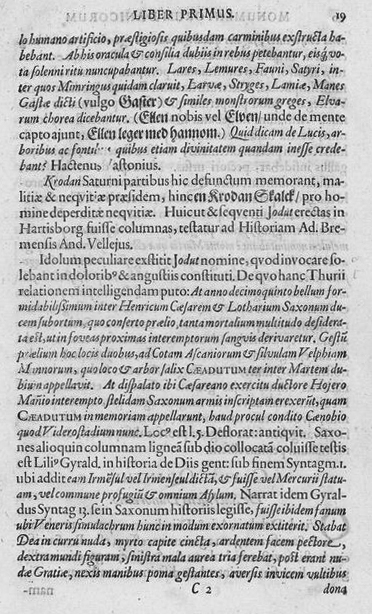 LIBER PRIMUS. 19
lo humano artificio, præstigiosis quibusdam carminibus exstructa ha-
bebant. Ab his oracula & consilia dubiis in rebus petebantur, eisq; vo-
ta solenni ritu nuncupabantur. Lares, Lemures, Fauni, Satyri, in-
ter quos Mimringus quidam claruit, Larvæ, Stryges, Lamiæ, Manes
Gastæ dicti (vulgo Gaster) & similes monstrorum greges, Elva-
rum chorea dicebantur. (Ellen nobis vel Elven/ unde de mente
capto ajunt, Ellen leger med hannom.) Quid dicam de Lucis, ar-
boribus ac quibus etiam divinitatem quandam inesse crede-
bant? Hactenus
Krodan Saturni partibus hic defunctum memorant, ma-
litiæ & neqvitiæ præsidem, hinc en Krodan Skalck/ pro ho-
mine deperditæ neqvitiæ. Huic ut & seqventi Jodut erectas in
Hartisborg fuisse columnas, testatur ad Historiam Ad. Bre-
mensis And. Vellejus.
Idolum peculiare exstitit Jodut nomine, qvod invocare so-
lebant in dolorib⁹ & angustiis constituti. De qvo hanc Thurii
relationem intelligendam puto: At anno decimo quinto bellum for-
midabilissimum inter Henricum Cæsarem & Lotharium Saxonum du-
cem subortum, quo conserto prælio, tanta mortalium multitudo desidera-
ta est, ut in foveas proximas interemptorum sangvis derivaretur. Gestū
prælium hoc locis duobus, ad Cotam Ascaniorum & silvulam Velphiam
M nnorum, quo loco & arbor salix CÆADUTUM ter inter Martem du-
bium appellavit. At dispalato ibi Cæsareano exercitu ductore Hojero
Mañio interempto, stelidam Saxonum armis inscriptam erexerūt, quam
CÆADUTUM in memoriam appellarunt, haud procul condito Cænobio
quod Viderostadium nunc. Loc⁹ est l. 5. Destorat: antiqvit. Saxo-
nes alioquin columnam ligneā sub dio collocatā coluisse testis
est Lili⁹ Gyrald. in historia de Diis gent: sub finem Syntagm. 1.
ubi addit eam Irmēsul vel Irmensul dictā, & fuisse vel Mercurii statu-
am, vel commune profugii & omnium Asylum. Narrat idem Gyral-
dus Syntag 13. se in Saxonum historiis legisse, fuisse ibidem fanum
ubi Veneris simulachrum hunc in modum exornatum extiterit. Stabat
Dea in curru nuda, myrto capite cincta, ardentem facem pectore,
dextra mundi figuram, sinistra mala aurea tria ferebat, post erant nu-
dæ Gratiæ, nexis manibus poma gestantes, aversis invicem vultibus
C 2 dona